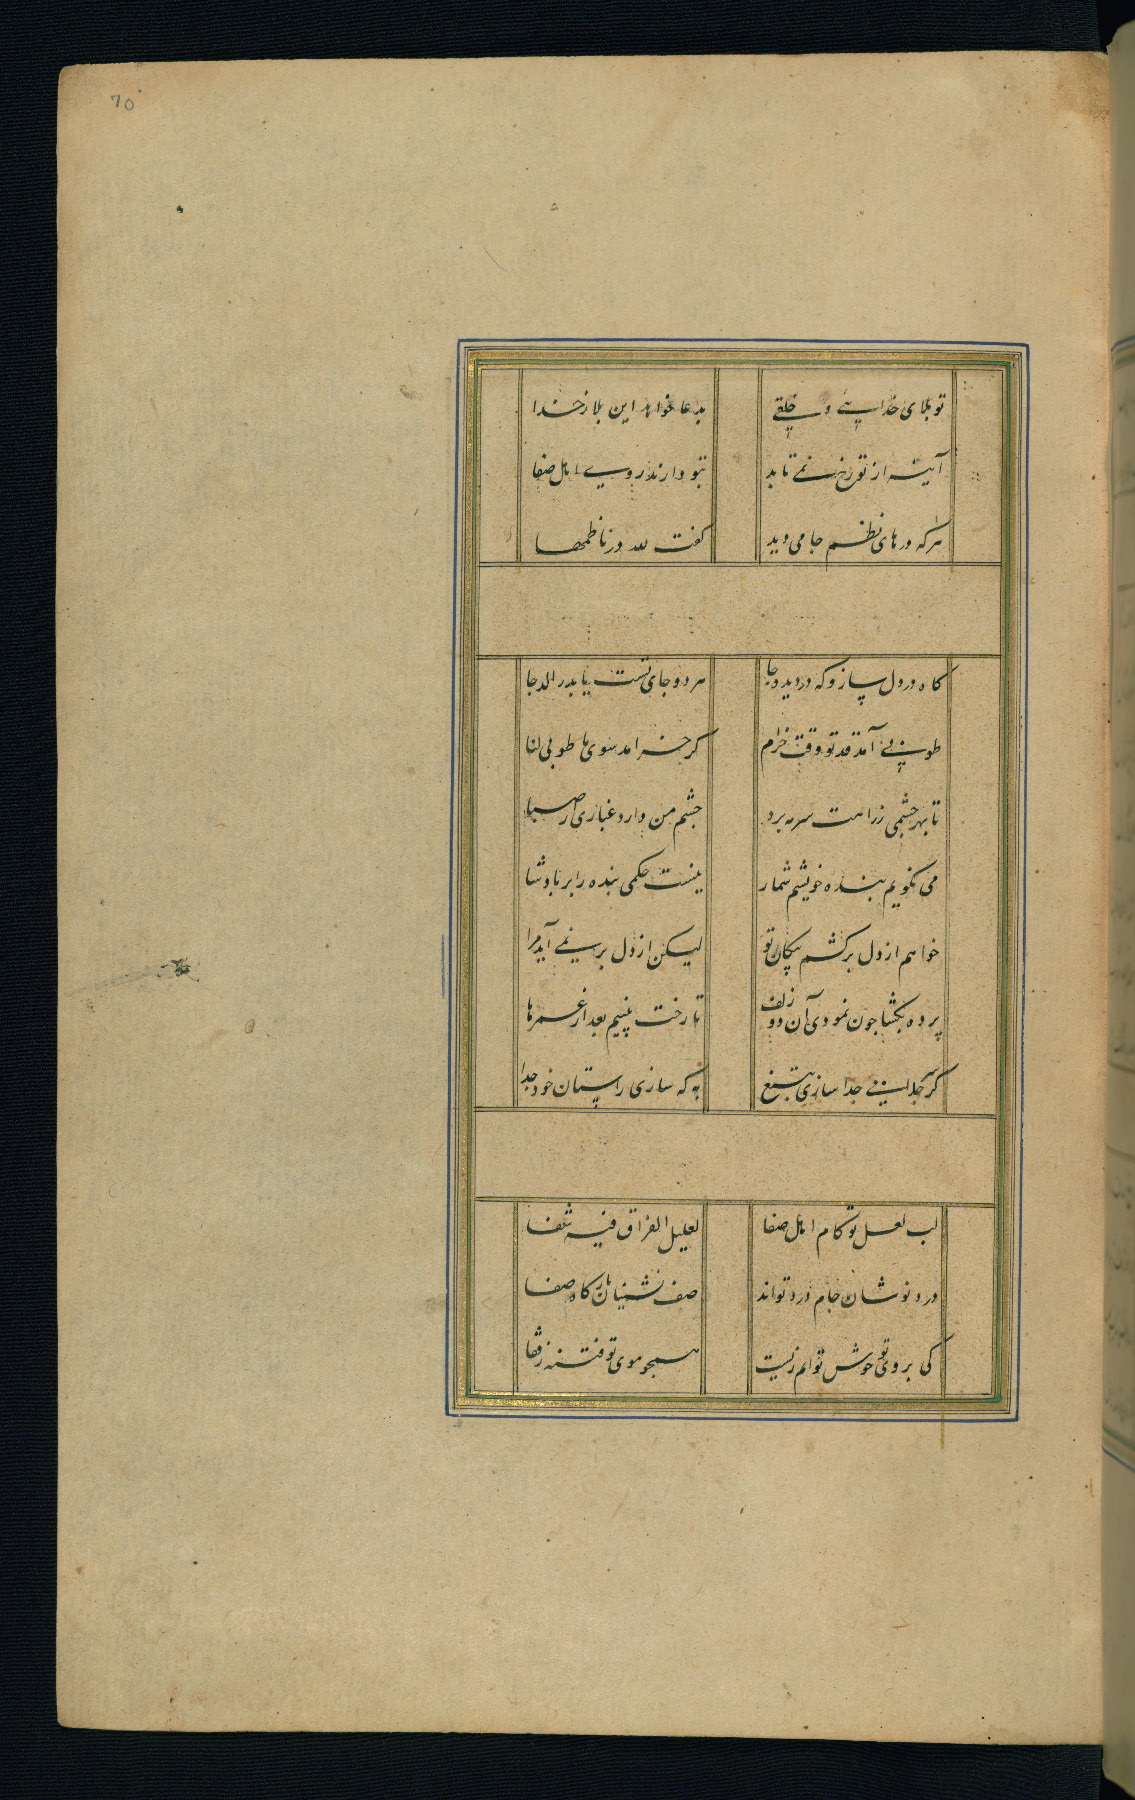 70
تو بلای خدایی و خلقی بدعا خواهد این بلا ز خدا
آینه از تو رخ نمی تابد بتو دارند روی اهل صفا
هر که درهای نظم جامی دید گفت لله در ناظمها
گاه در دل ساز و گه در دیده جا هر دو جای تست یا بدر الدجا
طوبی آمد قد تو وقت خرام گر خرامد سوی ما طوبی لنا
تا بهر چشمی ز راهت سرمه برد چشم من دارد غباری از صبا
می نگویم بنده خویشم شمار نیست حکمی بنده را بر پادشا
خواهم از دل برکشم پیکان تو لیکن از دل بر نمی آید مرا
پرده بگشا چون نمودی آن دو زلف تا رخت بینم بعد از عمرها
گر جدا سازی بتیغ به که سازی ز آستان خود جدا
لب لعل تو کام اهل صفا لعلیل الفراق فیه شفا
درد نوشان جام درد تواند صف نشینان بارگاه صفا
کی بروی تو خوش توانم زیست همچو موی تو فتنه ز قفا